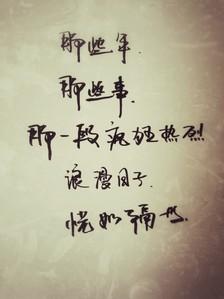 那些年.
那些事.
那一段疯狂热烈
浪漫日子.
恍如隔世.